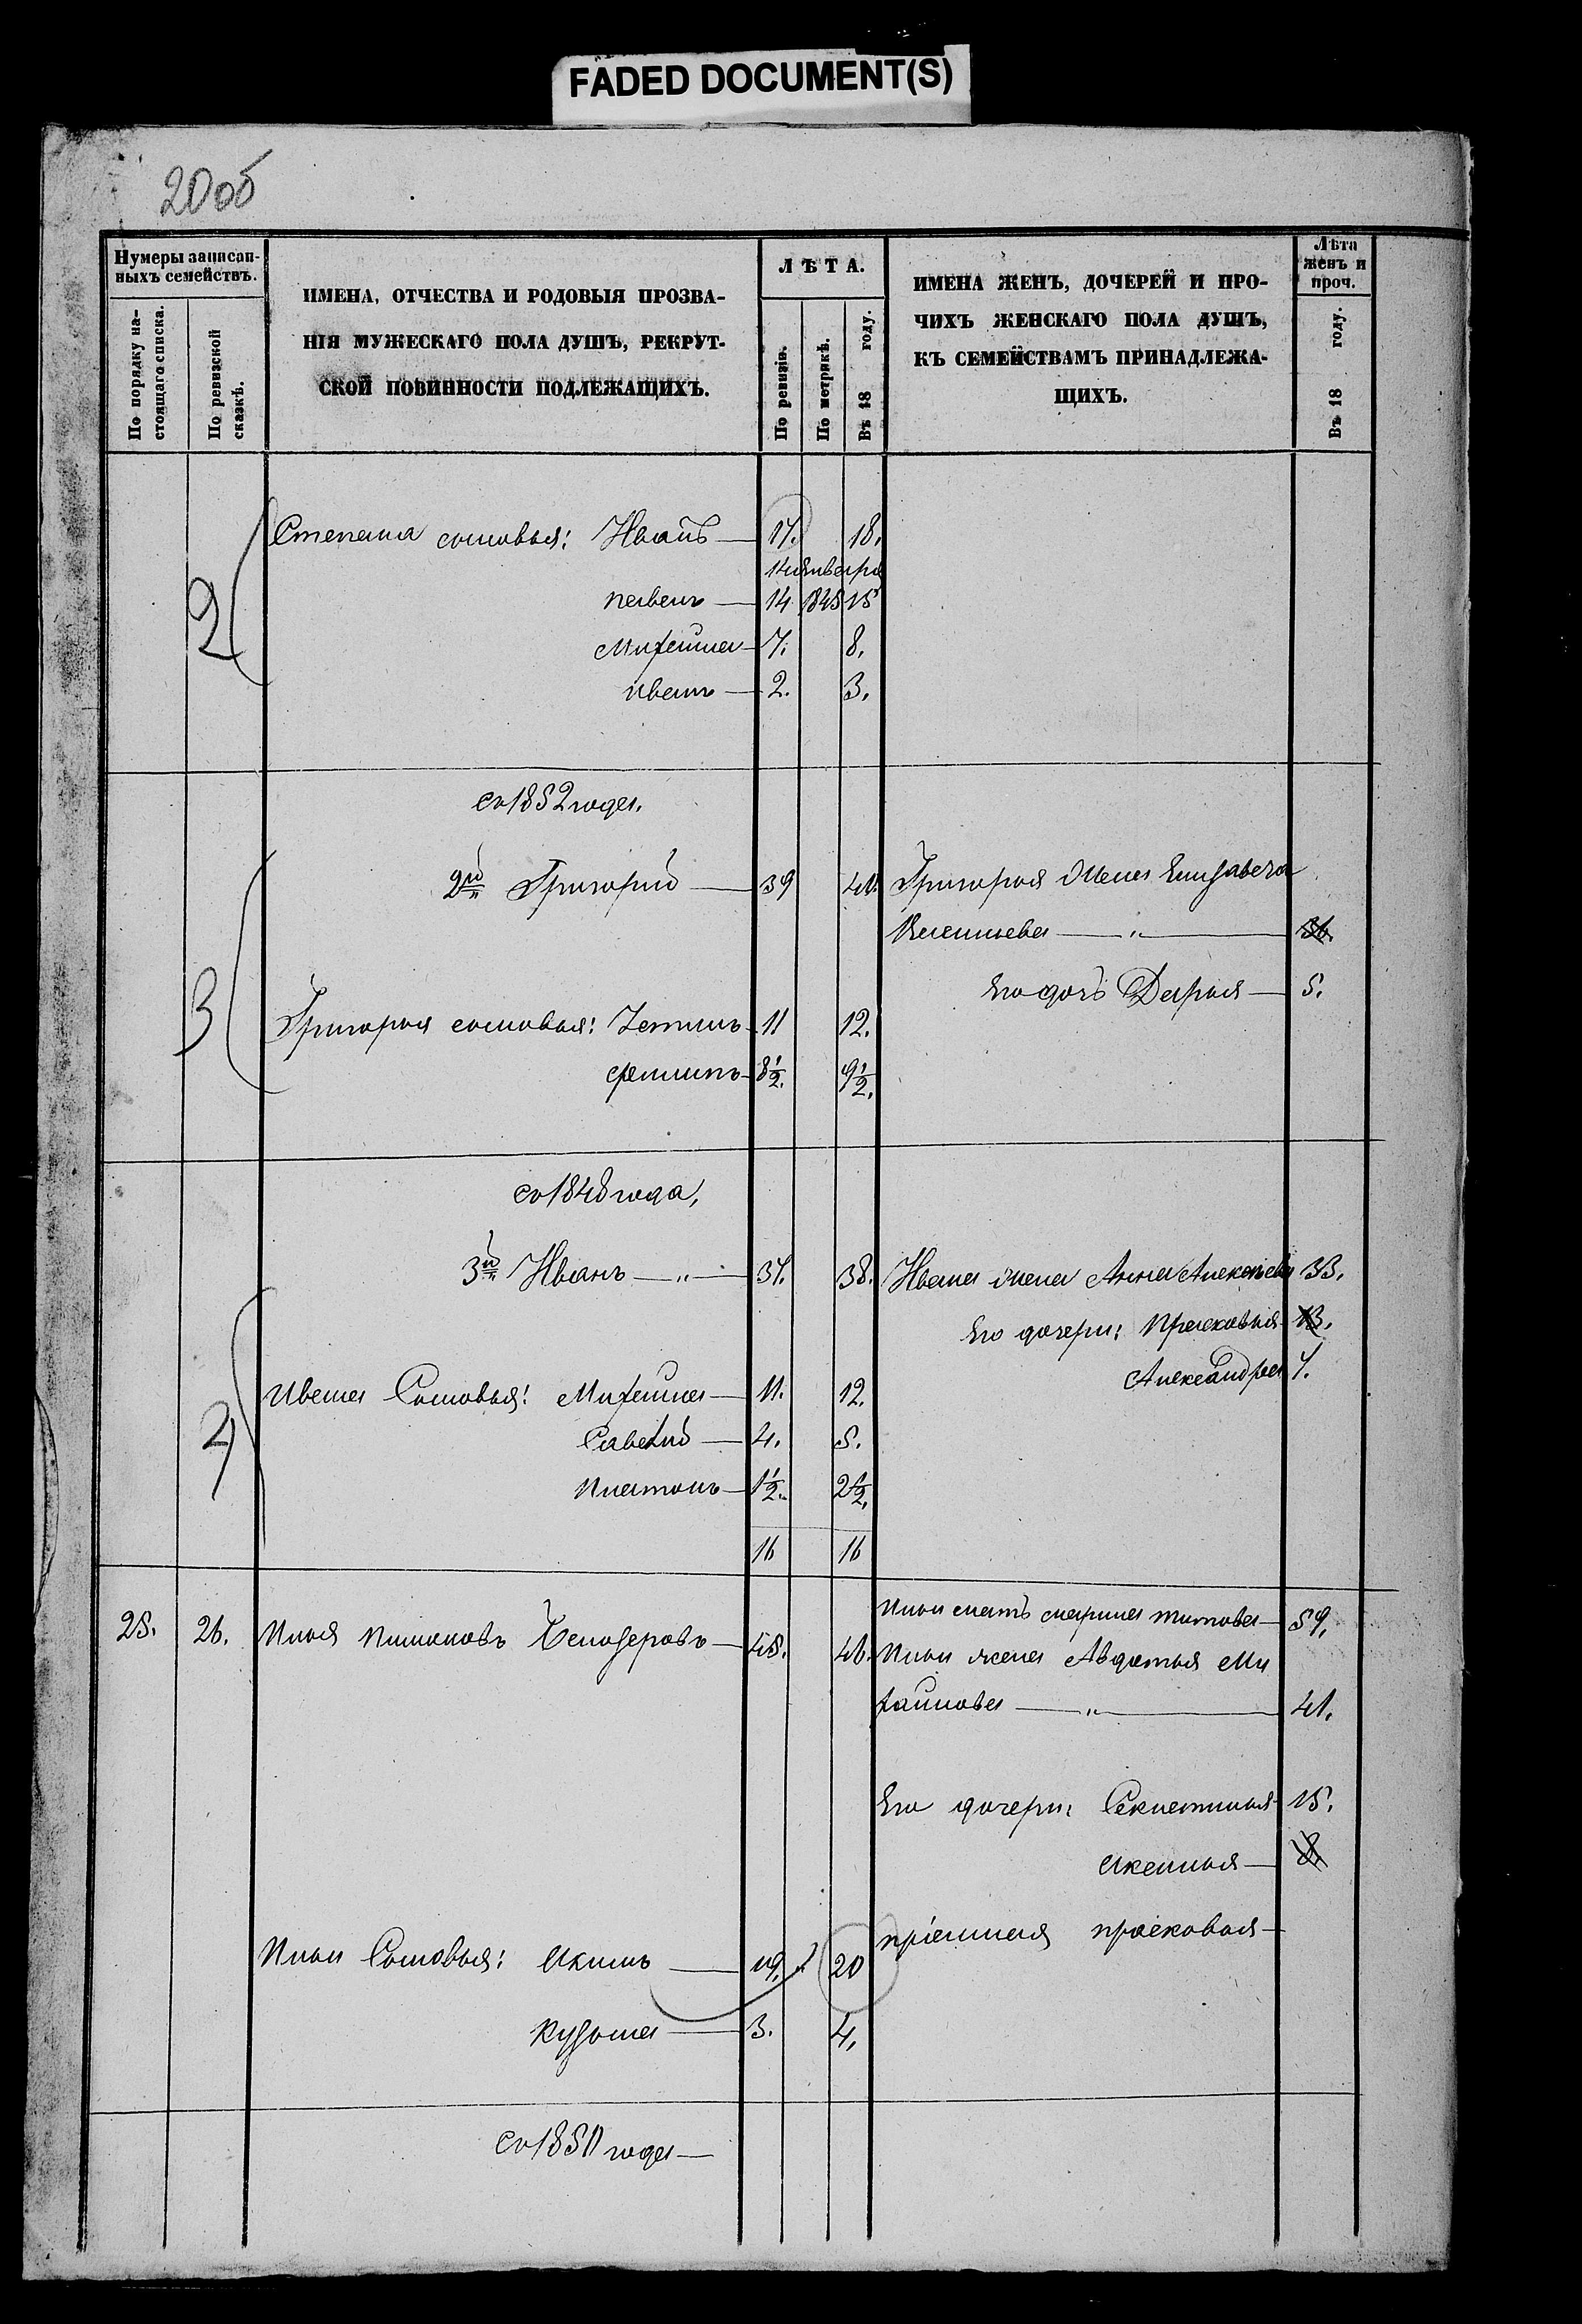 FADED DOCUMENT(S)
20об
Нумеры записан-
ныхъ семействъ.
По порядку на-
стоящаго списка.
По ревизской
сказкѣ.
ИМЕНА, ОТЧЕСТВА И РОДОВЫЯ ПРОЗВА-
НІЯ МУЖЕСКАГО ПОЛА ДУШЪ, РЕКРУТ-
СКОЙ ПОВИННОСТИ ПОДЛЕЖАЩИХЪ.
ЛѢТА.
По ревизіи.
По метрикѣ.
Въ 18 году.
ИМЕНА ЖЕНЪ, ДОЧЕРЕЙ И ПРО-
ЧИХЪ ЖЕНСКАГО ПОЛА ДУШЪ,
КЪ СЕМЕЙСТВАМЪ ПРИНАДЛЕЖА-
ЩИХЪ.
Лѣта
женъ и
проч.
Въ 18 году.
2
Степана сыновья: Иванъ — 17. 18.
14 января
павелъ — 14 1845 15
Михаила — 7. 8.
иванъ — 2. 3.
съ 1852 года.
3
2й Григорій — 39 40. Григорья жена Елизавета
Васильева — " — 36.
Его дочь Дарья — 5.
Григорья сыновья: — 11 12.
филипъ — 8½. 9½.
съ 1848 года,
4
3й Иванъ — " — 37. 38. Ивана жена Анна Алексѣева 33.
Его дочери: Прасковья 13.
Александра 7.
Ивана Сыновья: Михаила — 11. 12.
Савелій — 4. 5.
Платонъ — 1½. 2½.
16 16
25. 26. Илья Пимоновъ Белозеровъ — 45. 46.
Ильи мать марина титова — 59.
Ильи жена Авдотья Ми
хайлова — " — 41.
Его дочери: Секлетинья 15.
акилина — 8.
пріемная прасковья —
Ильи Сыновья: Акимъ — 19. 20
Кузьма — 3. 4.
съ 1850 года —